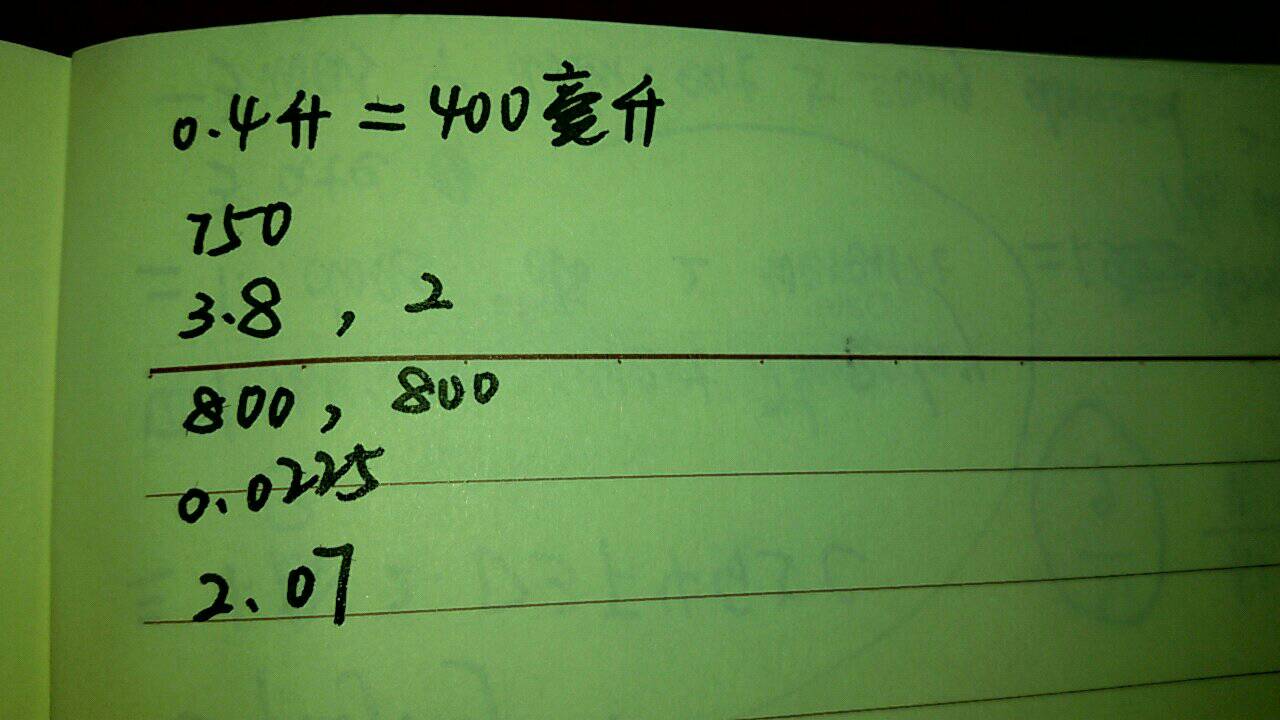 0.4升=400毫升
750
3.8,2
800,800
0.0225
2.07